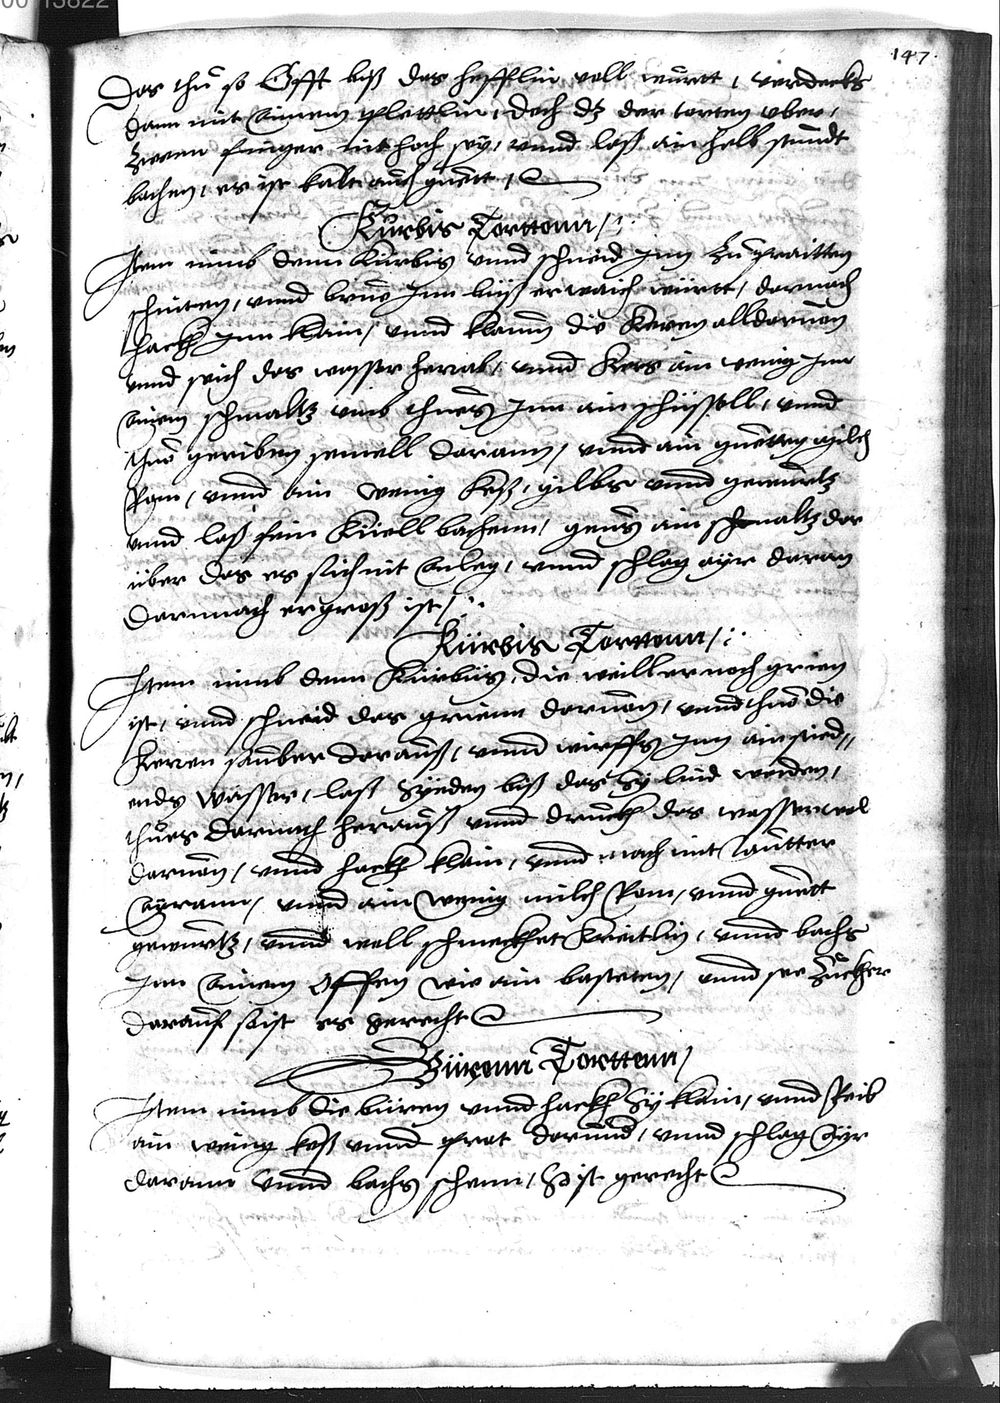 147.
Das thu so Offt biß das hefflin voll württ, verdeckhs
dann mit Ainem plettlin, doch dz der torten vber,
Zwen finger nit hoch sey, vnnd laß ain halb stundt
bachen, es ist kalt auch guett,
Kürbis Torttenn,
Item nimb denn Kürbis vnnd schneid Inn Zu praitten
schnitten, vnnd brüe Inn biß er waich württ, darnach
hackh Inn klain, vnnd klaub die Keren all daruon
vnnd seich das wasser herab, vnnd Rers ain wenig Inn
Ainem schmaltz vnb thues Inn ain schüssell, vnnd
thue geriben semell darann, vnnd ain guetten milch
Ram, vnnd ain wenig keß, gilbs vnnd gewürtz
vnnd laß fein Küell bachenn, geus ain schmaltz dar
über das es sich nit Anleg, vnnd schlag ayr daran
darnnach er groß ist,
Kürbis Torttenn,
Item nimb denn Kürbüs, die weill er noch grien
ist, vnnd schneid das grienn daruon, vnnd thue die
Kerren sauber darauß, vnnd wirffs Inn ain sied,,
ends wasser, lass Syeden biß das Sy lind werden,
thues darnach herauß vnnd druckh das wasser wol
daruon, vnnd hackh klain, vnnd mach mit lautter
Ayrann, vnnd ain wenig milch Ram, vnnd guett
gewürtz, vnnd woll schmeckhet Kreitlin, vnnd bachs
Inn Ainem Offen wie ain basteten, vnnd see Zuckher
darauf so ist es gerecht
Büren Torttenn,
Item nimb die büren vnnd hackh Sy klain, vnnd Reib
ain wenig keß vnnd prot darund, vnnd schlag Ayr
darann vnnd bachs schenn, So ist gerecht